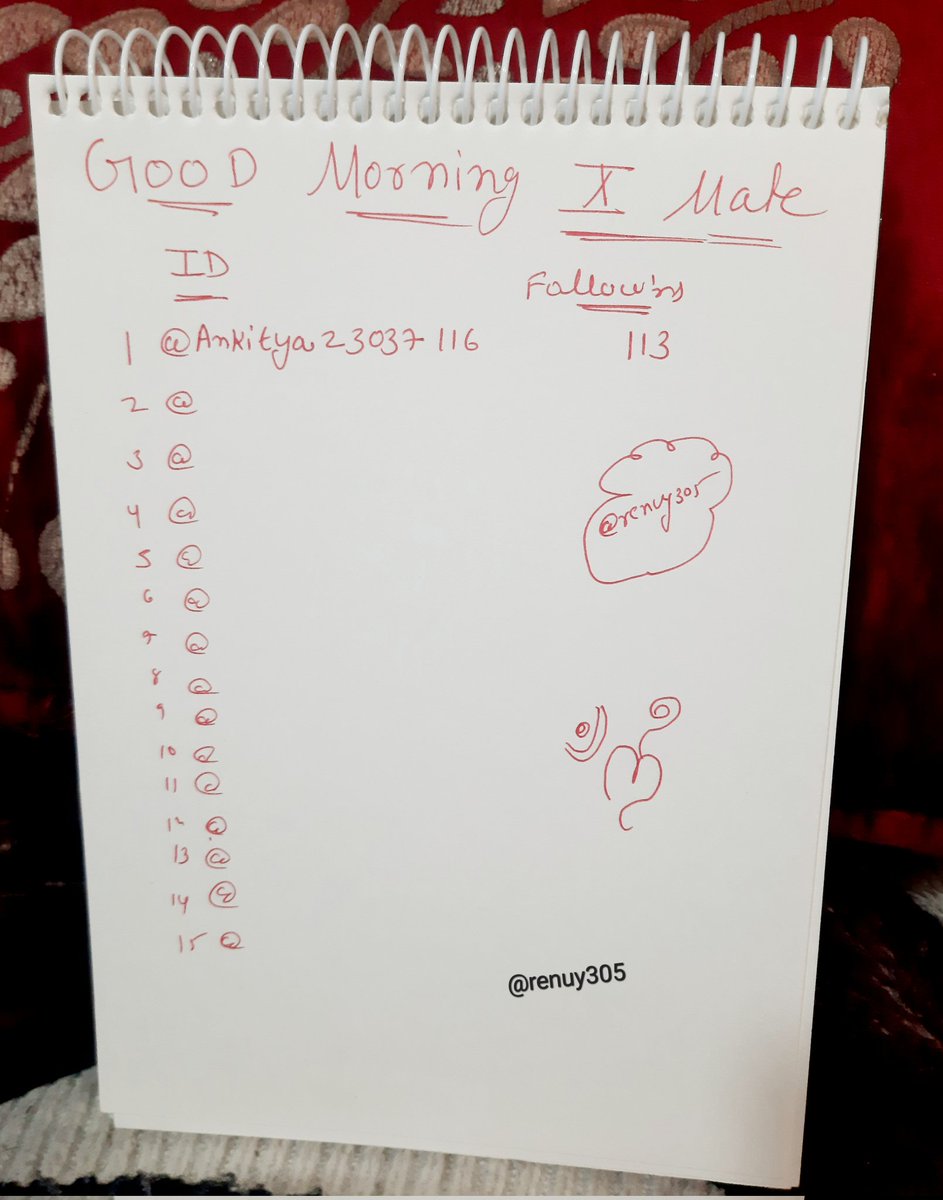 GOOD Morning X Mate
ID Follow'rs
1 @Ankitya23037116 113
2 @
3 @
4 @
5 @
6 @
7 @
8 @
9 @
10 @
11 @
12 @
13 @
14 @
15 @
@renuy305
@renuy305